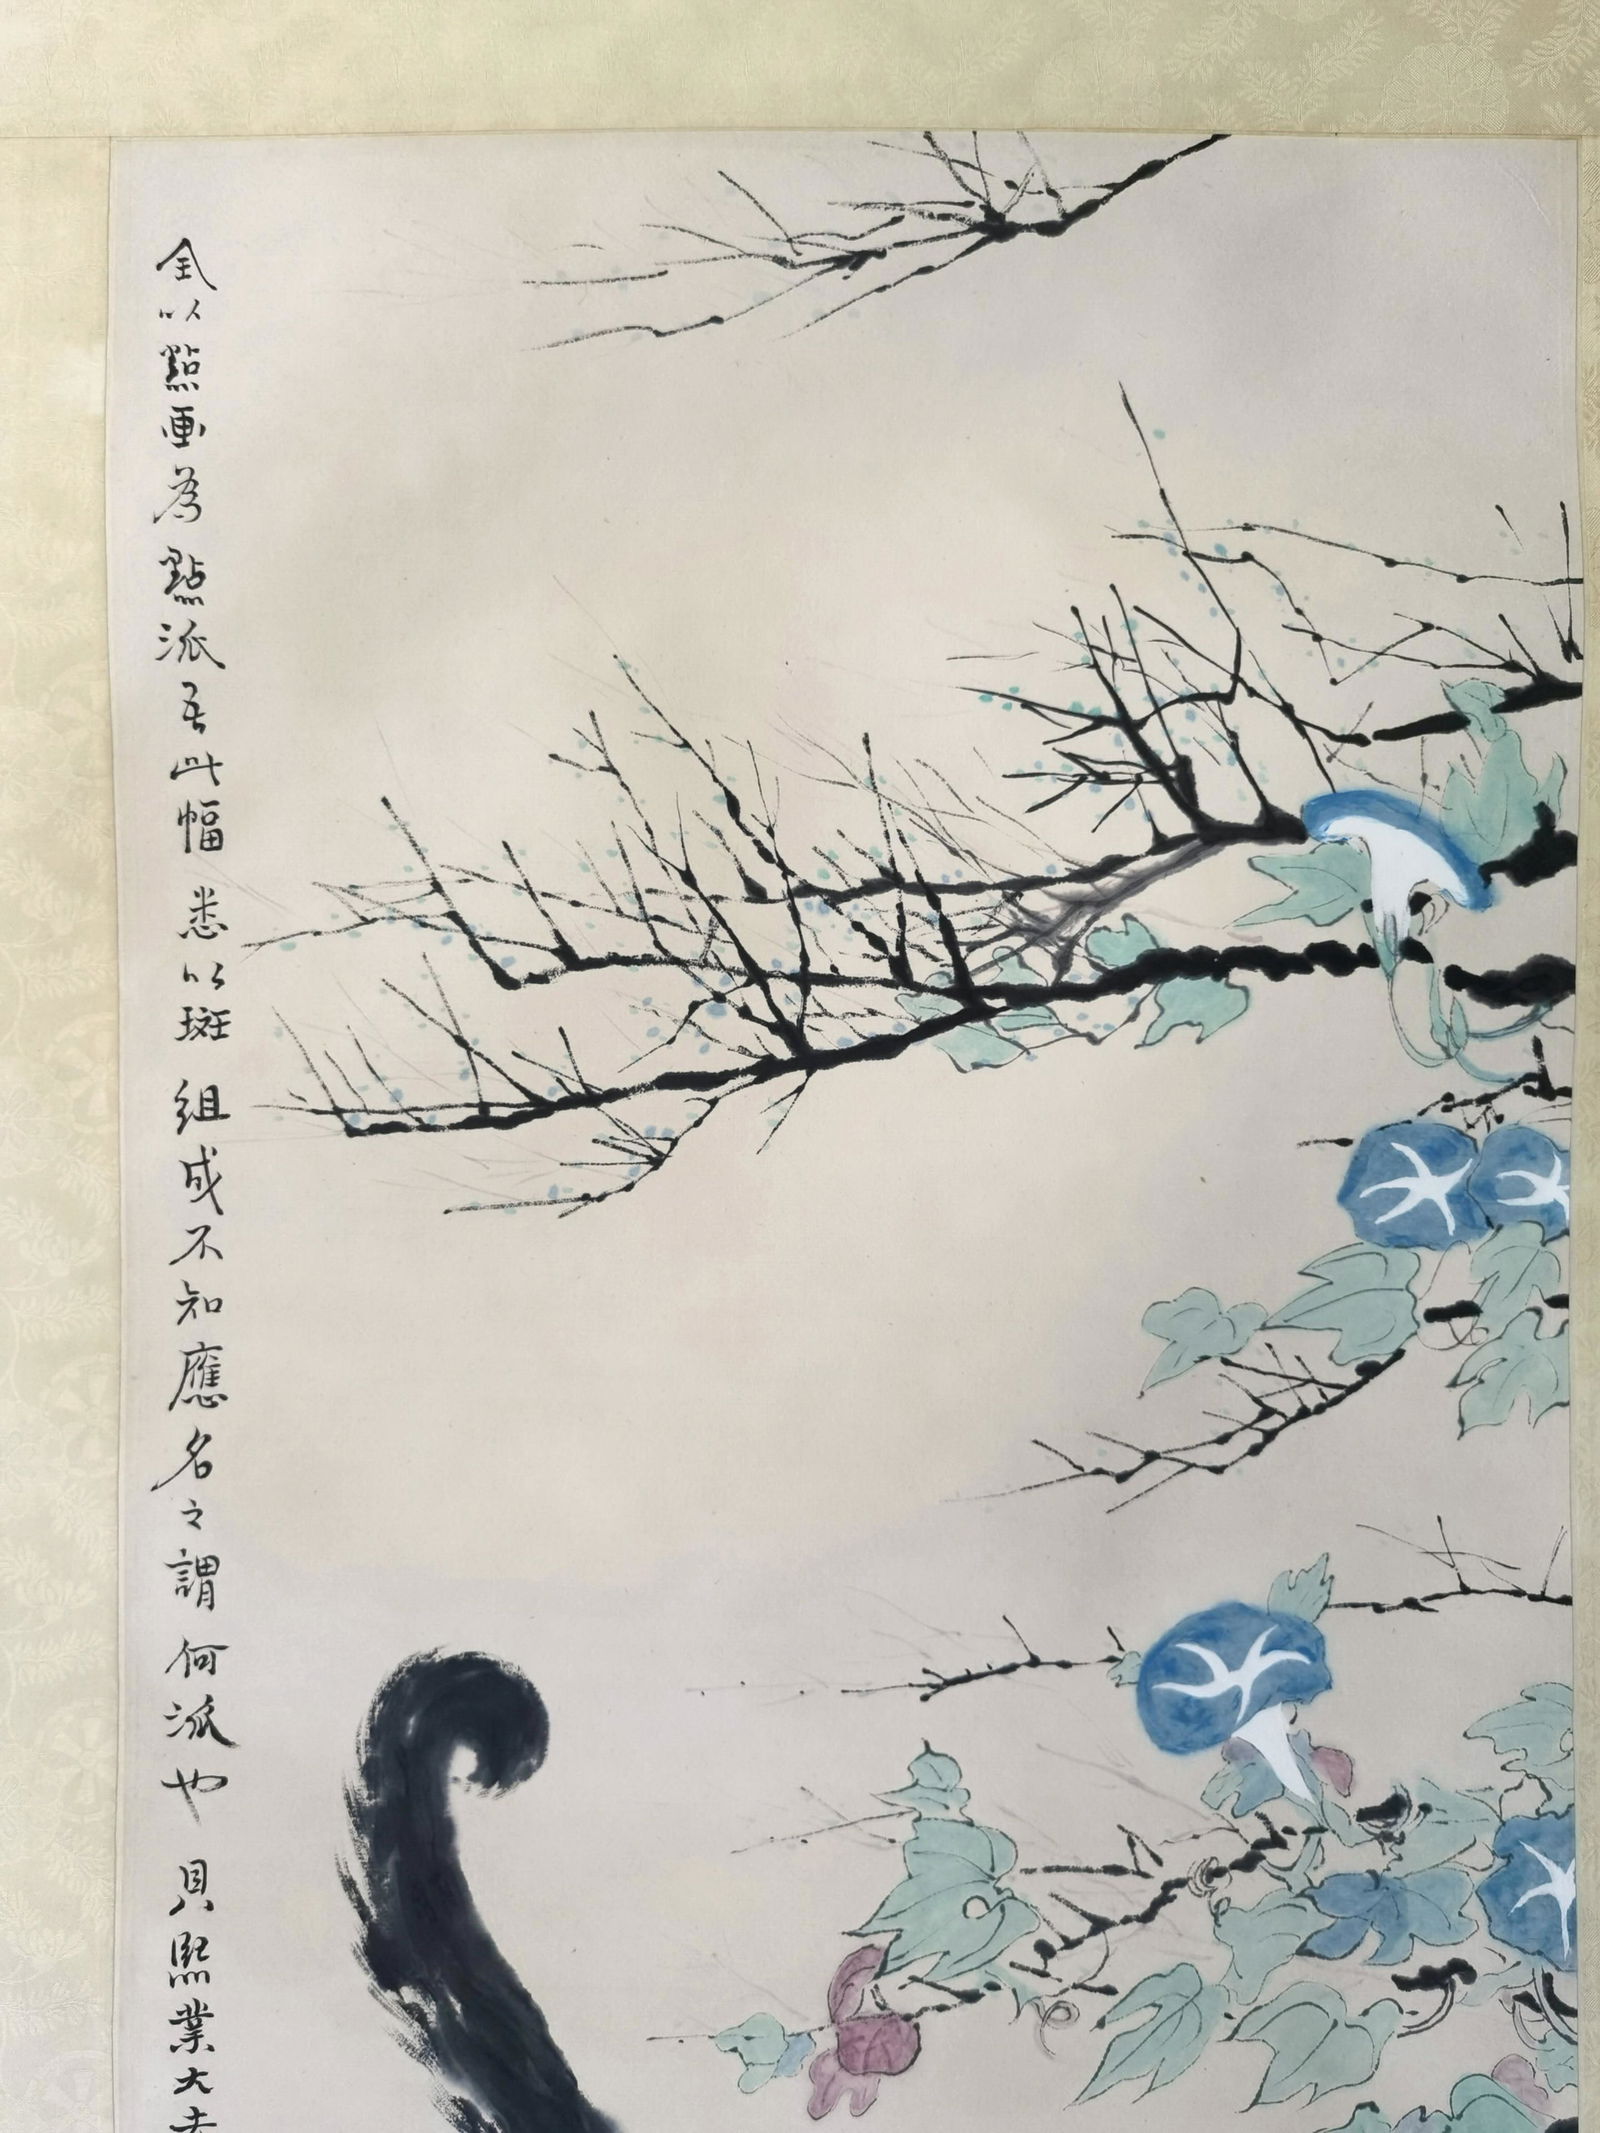 全以點畫為點派吾此幅悉以斑組成不知應名之謂何派也貝熙業大夫